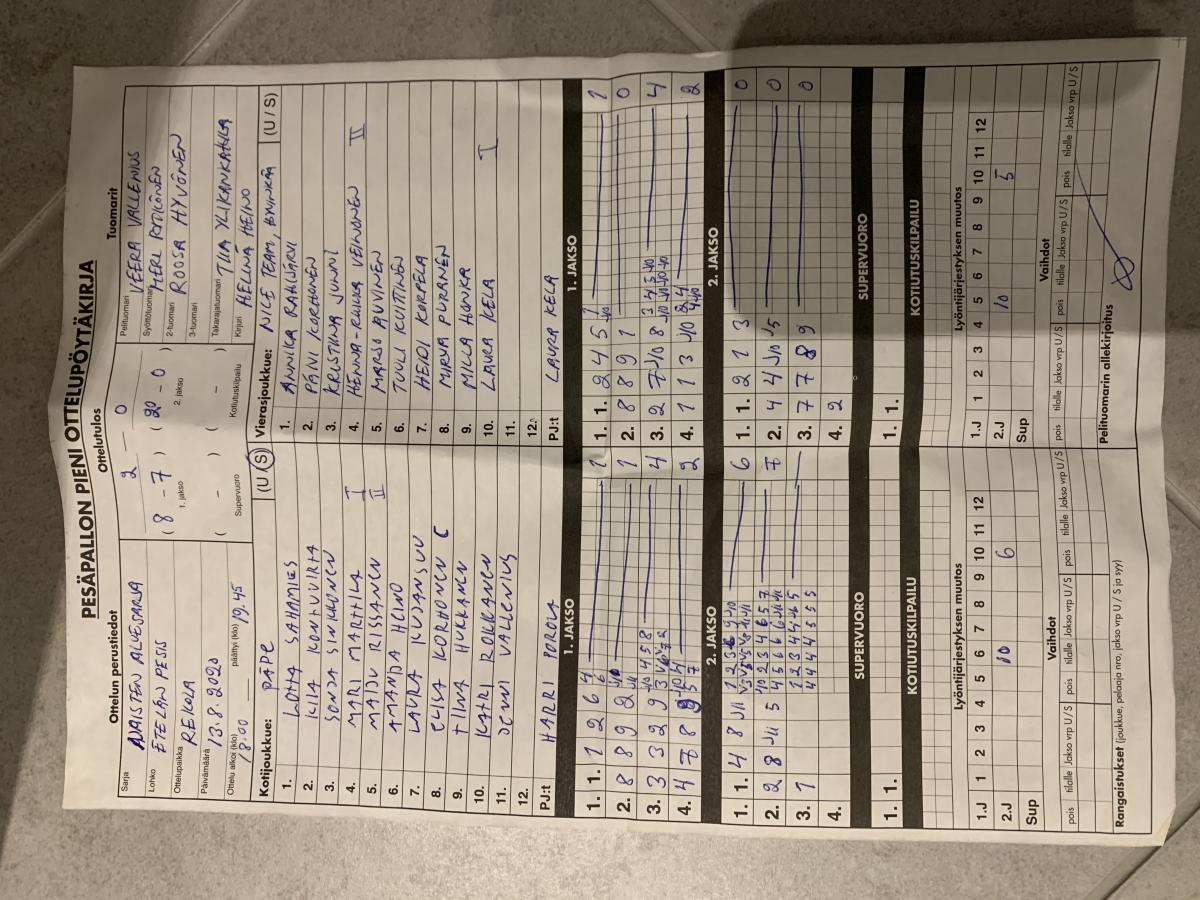 PESÄPALLON PIENI OTTELUPÖYTÄKIRJA
Ottelun perustiedot
Sarja NAISTEN ALUESARJA
Lohko ETELÄN PESIS
Ottelupaikka REKOLA
Päivämäärä 13.8.2020
Ottelu alkoi (klo) 18.00 päättyi (klo) 19.45
Ottelutulos
2 — 0
( 8 - 7 ) ( 20 - 0 )
1. jakso 2. jakso
( - ) ( - )
Supervuoro Kotiutuskilpailu
Tuomarit
Pelituomari VEERA VALLENIUS
Syöttötuomari
2-tuomari ROOSA HYVÖNEN
3-tuomari
Takarajatuomari TIIA YLIKANKAHILA
Kirjuri HELINÄ HEINO
Kotijoukkue: PÄPE (U / S)
1. LOTTA SAHAMIES
2. KIIA KONTUVIRTA
3. SONJA SINKKONEN
4. MARI MARTTILA I
5. MAIJU RISSANEN II
6. AMANDA HEINO
7. LAURA KUJANSUU
8. ELISA KORHONEN C
9. TIINA HUKKANEN
10. KATRI ROIKANEN
11. JENNI VALLENIUS
12.
PJ:t HARRI POROLA
Vierasjoukkue: NICE TEAM, (U / S)
1. ANNIKA RAHIJÄRVI
2. PÄIVI KORHONEN
3. KRISTIINA JUNNI
4. HENNA-RIIKKA VEINONEN II
5. MARJO AUVINEN
6. TUULI KUITTINEN
7. HEIDI KORPELA
8. MIRVA PURANEN
9. MILLA HONKA
10. LAURA KELA I
11.
12.
PJ:t LAURA KELA
1. JAKSO
1. 1. 1 2 6 4 1
2. 8 8 9 2 1
3. 3 3 2 9 4
4. 4 7 8 2
1. JAKSO
1. 1. 2 4 5 1
2. 8 8 9 1 0
3. 2 7 8 4
4. 1 1 3 2
2. JAKSO
1. 1. 4 8 6
2. 2 8 5 7
3. 1
4.
2. JAKSO
1. 1. 2 1 3 0
2. 4 4 0
3. 7 7 8 9 0
4. 2
SUPERVUORO
1. 1.
SUPERVUORO
1. 1.
KOTIUTUSKILPAILU
KOTIUTUSKILPAILU
Lyöntijärjestyksen muutos
1.J 1 2 3 4 5 6 7 8 9 10 11 12
2.J 10 6
Sup
Lyöntijärjestyksen muutos
1.J 1 2 3 4 5 6 7 8 9 10 11 12
2.J 10 5
Sup
Vaihdot
pois tilalle Jakso vrp U / S pois tilalle Jakso vrp U / S pois tilalle Jakso vrp U / S
Vaihdot
pois tilalle Jakso vrp U / S pois tilalle Jakso vrp U / S pois tilalle Jakso vrp U / S
Rangaistukset (joukkue, pelaaja nro, jakso vrp U / S ja syy)
Pelituomarin allekirjoitus